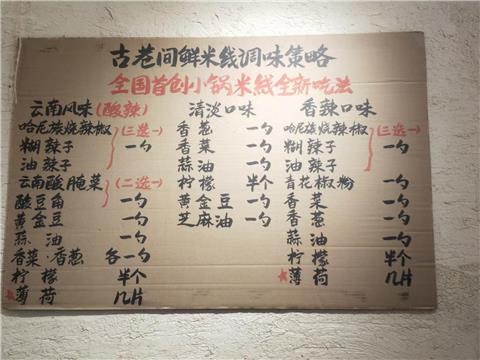 古巷间鲜米线调味策略
全国首创小锅米线全新吃法
云南风味(酸辣)
哈尼族烧辣椒 (三选一)
糊辣子 一勺
油辣子
云南酸腌菜 (二选一)
酸豆角 一勺
黄金豆 一勺
蒜油 一勺
香菜·香葱 各一勺
柠檬 半个
★薄荷 几片
清淡口味
香葱 一勺
香菜 一勺
蒜油 一勺
柠檬 半个
黄金豆 一勺
芝麻油 一勺
香辣口味
哈尼族烧辣椒 (三选一)
糊辣子 一勺
油辣子
青花椒粉 一勺
香菜 一勺
香葱 一勺
蒜油 一勺
柠檬 半个
★薄荷 几片